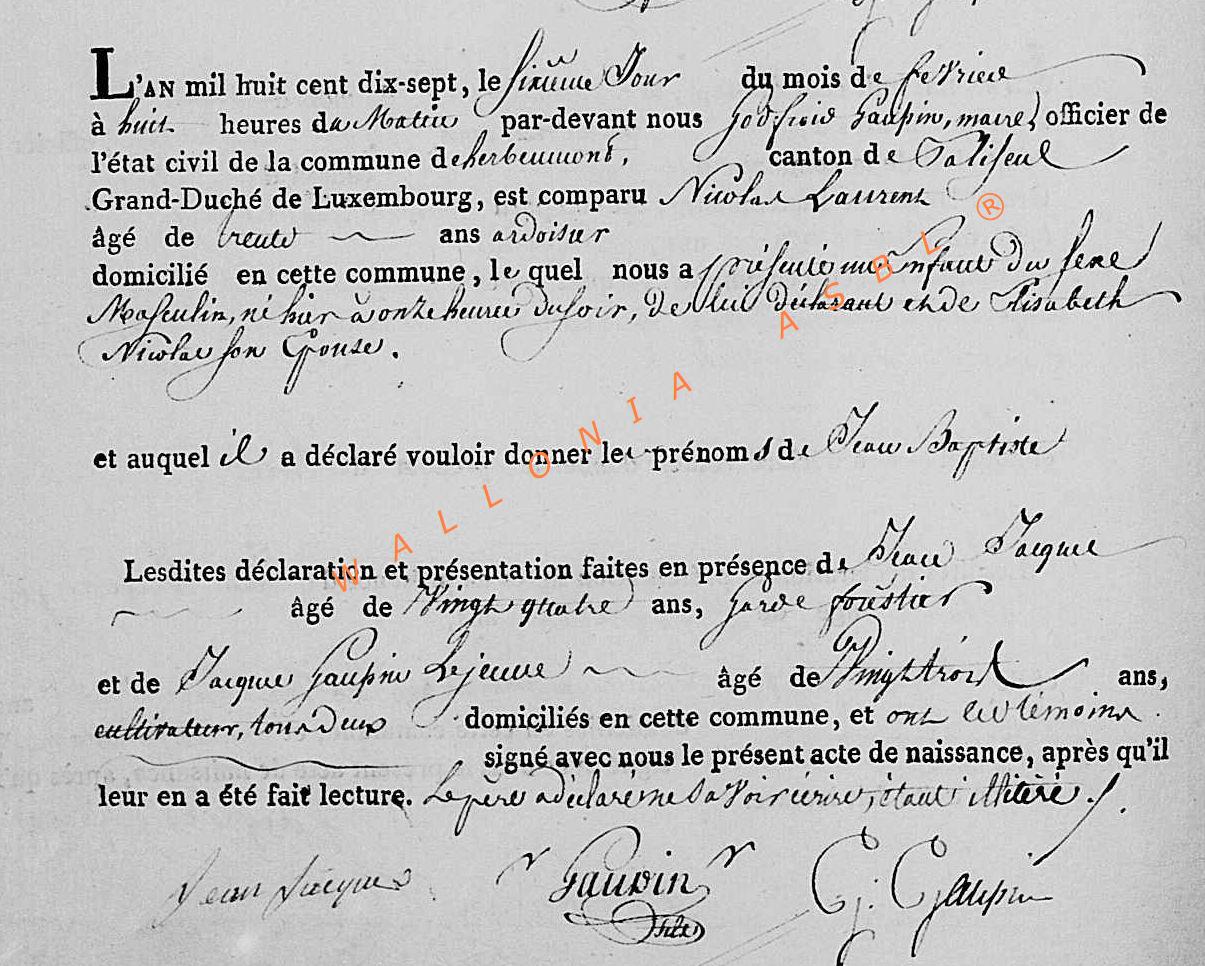 L'AN mil huit cent dix-sept, le sixième Jour du mois de fevrier
à huit heures du Matin par-devant nous Godfroid Gaupin, maire, officier de
l'état civil de la commune de herbeumont, canton de Paliseul
Grand-Duché de Luxembourg, est comparu Nicolas Laurent
âgé de trente ans ardoisier
domicilié en cette commune, le quel nous a présenté un Enfant du sexe
Masculin, né hier à onze heures du soir, de lui déclarant et de Elisabeth
Nicolas son Epouse.
et auquel il a déclaré vouloir donner les prénoms de Jean Baptiste
Lesdites déclaration et présentation faites en présence de Jean Jacques
âgé de Vingt quatre ans, garde forestier
et de Jacques Gaupin Lejeune âgé de Vingt trois ans,
cultivateur, tous deux domiciliés en cette commune, et ont les témoins
signé avec nous le présent acte de naissance, après qu'il
leur en a été fait lecture. Le père a déclaré ne savoir écrire, étant illitéré.
Jean Jacques Gaupin G: Gaupin
fils
WALLONIA ASBL ®